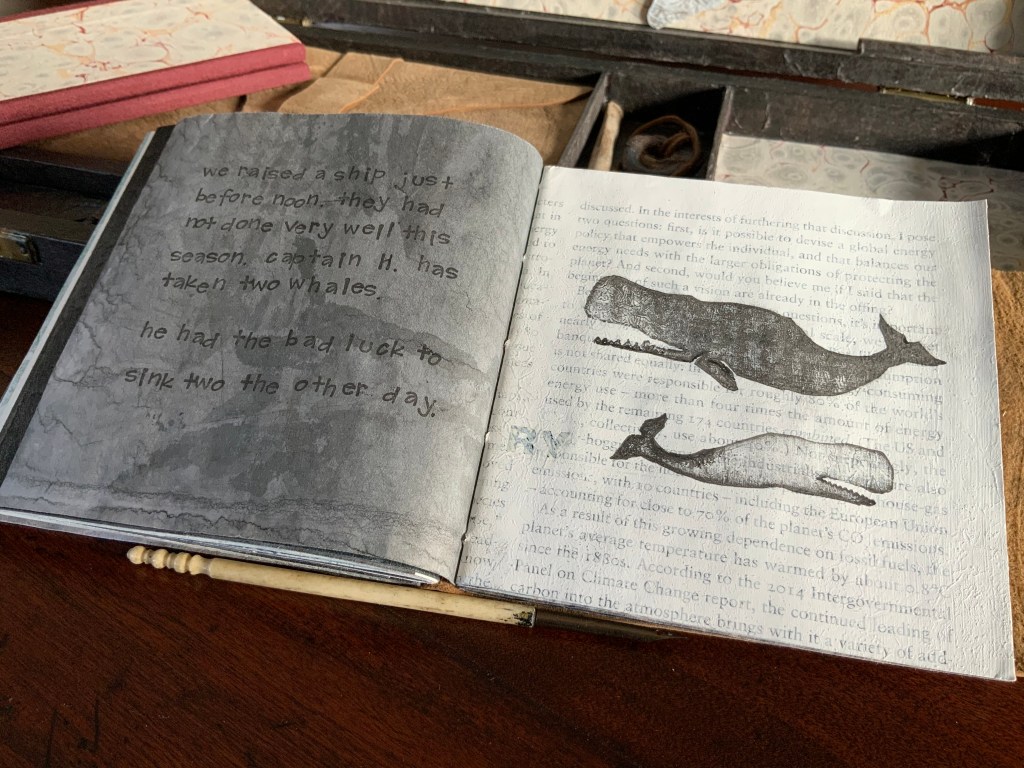 we raised a ship just
before noon. they had
not done very well this
season. captain H. has
taken two whales.
he had the bad luck to
sink two the other day.
discussed. In the interests of furthering that discussion, I pose
two questions: first, is it possible to devise a global energy
policy that empowers the individual, and that balances our
energy needs with the larger obligations of protecting the
planet? And second, would you believe me if I said that the
of such a vision are already in the offing?
questions, it's important
nearly scale, we
is not shared equally. consuming
countries were responsible roughly % of the world's
energy use – more than four times the amount of energy
used by the remaining 174 countries combined. (The US and
collective use
-hogg the
responsible for the industrial are also
emissions, with 10 countries – including the European Union
– accounting for close to 70% of the planet's CO emissions.
As a result of this growing dependence on fossil fuels, the
planet's average temperature has warmed by about 0.8°
since the 1880s. According to the 2014 Intergovernmental
Panel on Climate Change report, the continued loading of
carbon into the atmosphere brings with it a variety of add-